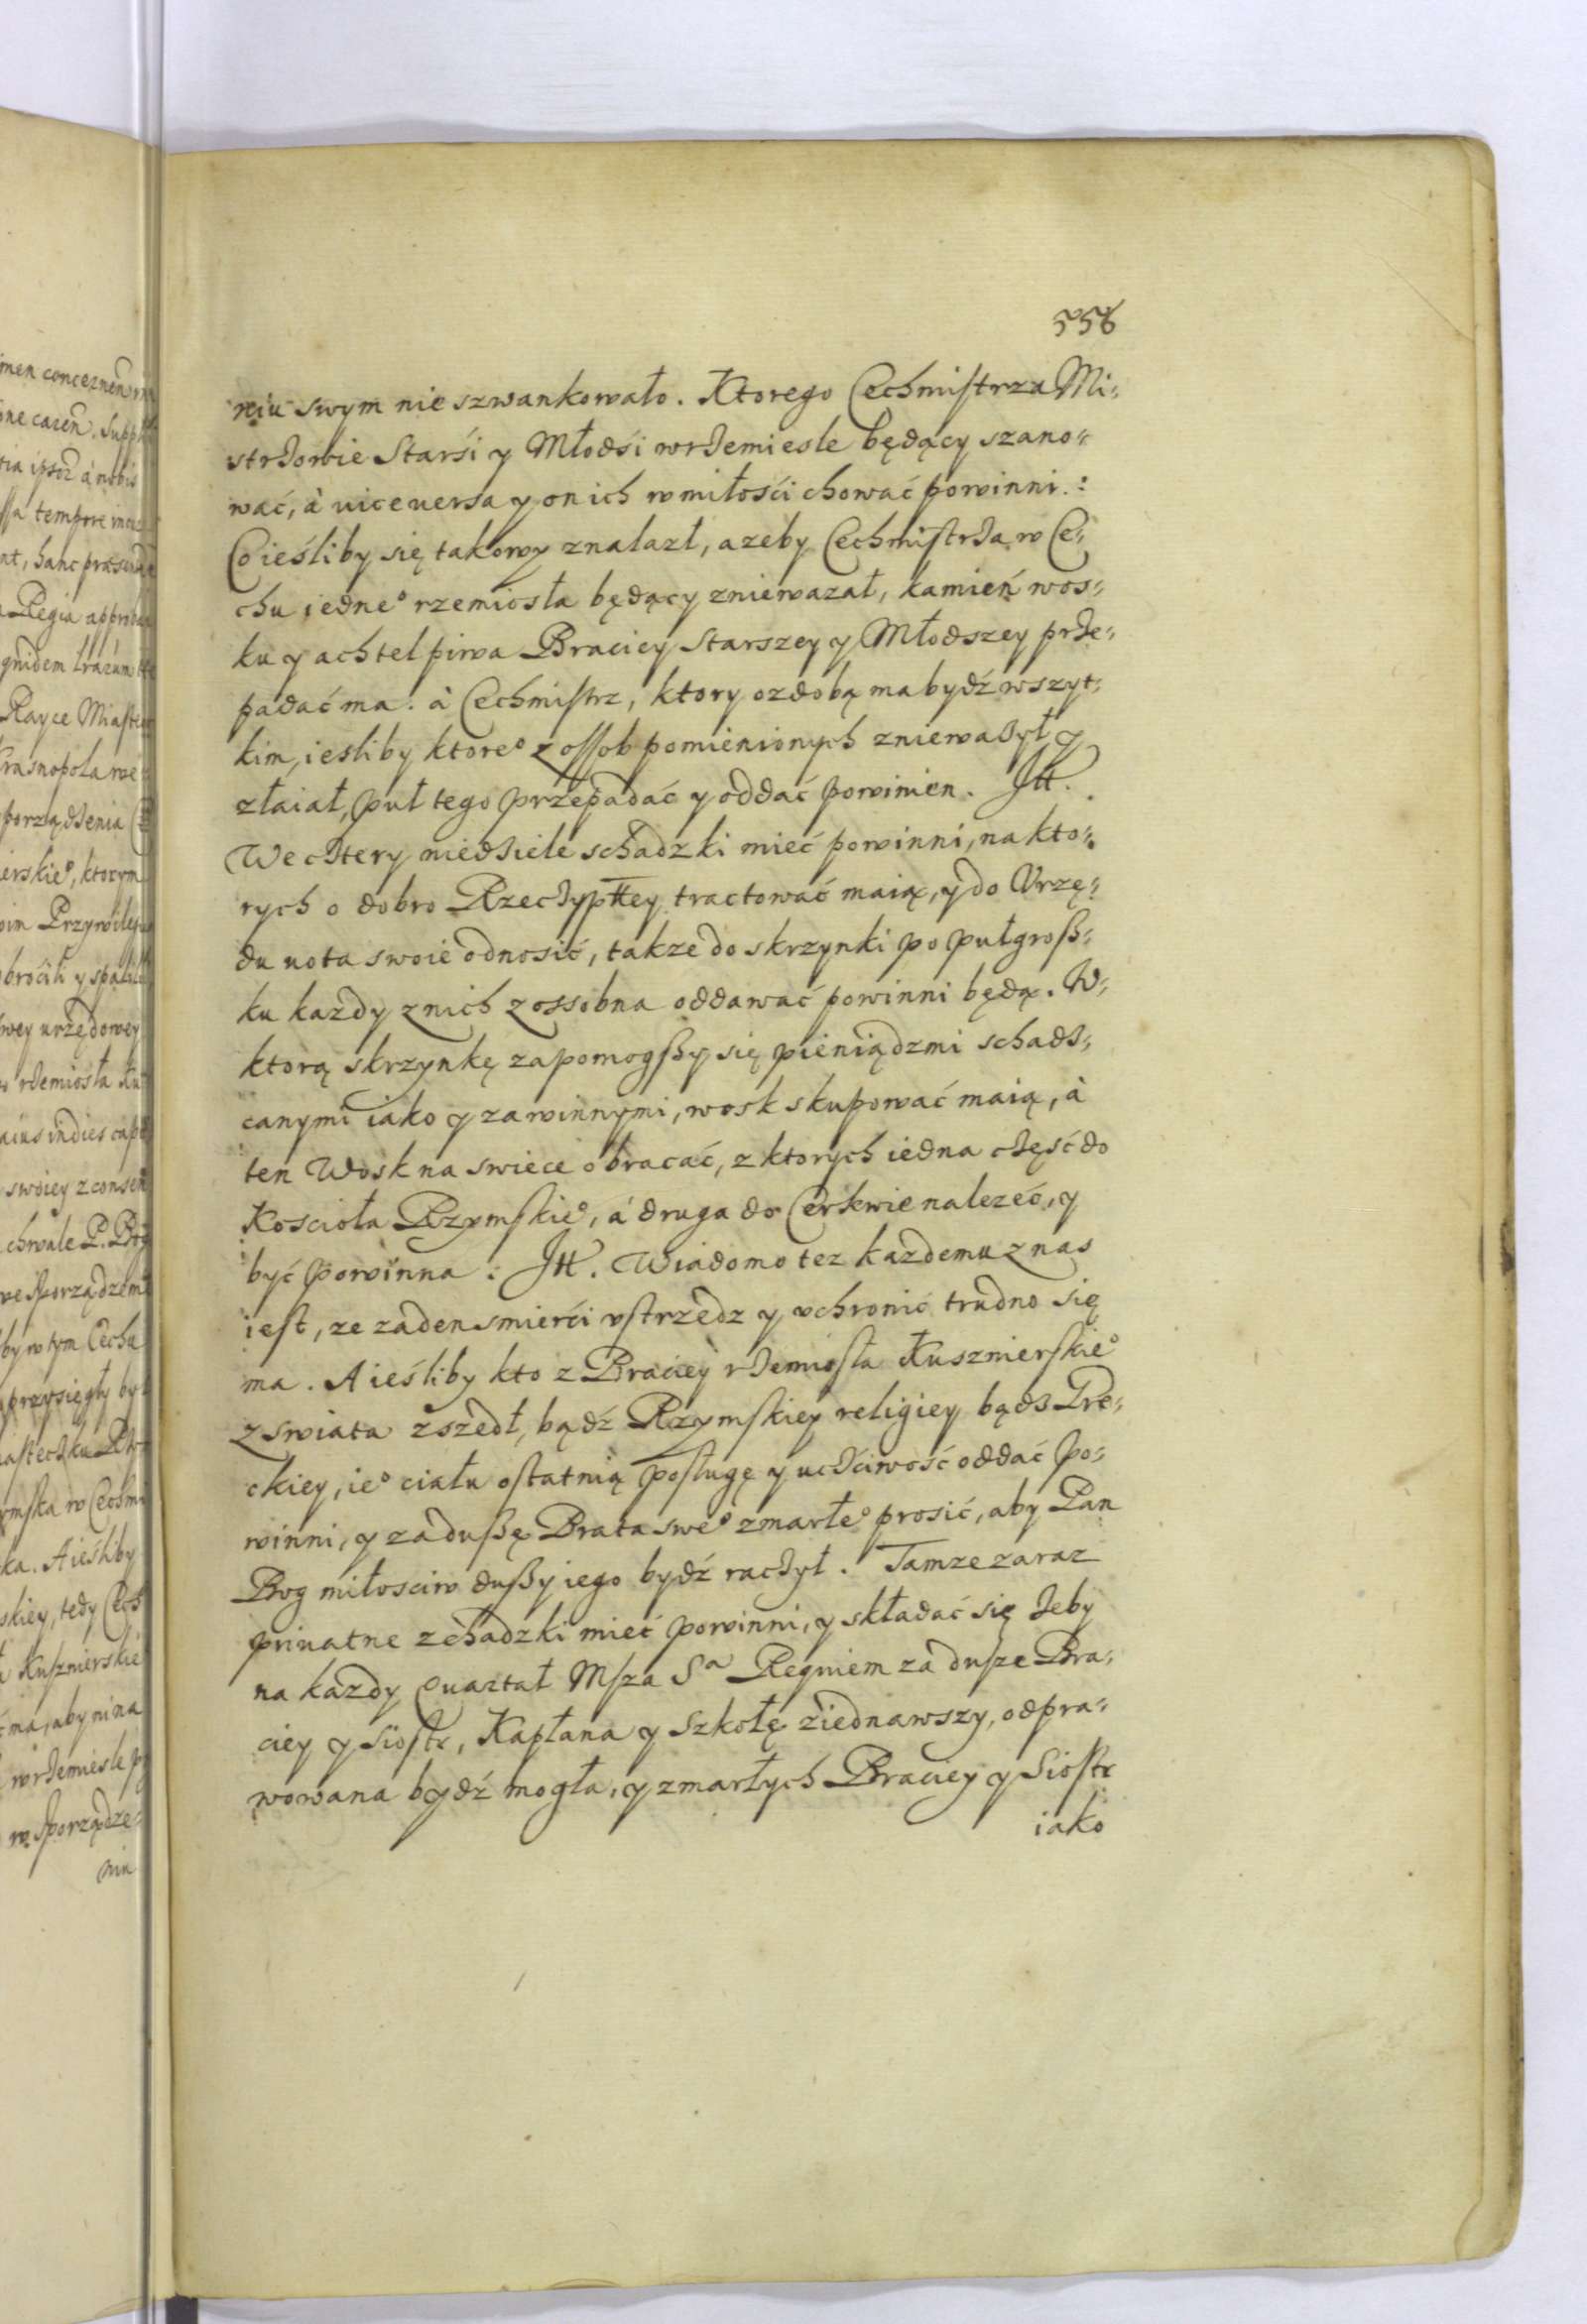 556
niu swym nie szwankowało. Ktorego Cechmistrza Mi⸗
strzowie Starśi y Młodśi w rzemiesle będący szano⸗
wać, à vice versa y on ich w miłosći chować powinni.:
Co ieśliby się takowy znalazł, azeby Cechmistrza w Ce⸗
chu iedneº rzemiosła będący zniewazał, kamień wos⸗
ku y achtel piwa Braciey Starszey y Młodszey prze⸗
padać ma. à Cechmistrz, ktory ozdobą ma bydź wszyt⸗
kim, iesliby ktoreº z ossob pomienionych zniewazył y
złaiał, puł tego przepadać y oddać powinien. Itt.
We cztery niedziele schadzki mieć powinni, na kto⸗
rych o dobro Rzeczypttey tractować maią, y do Vrzę⸗
du uota swoie odnosić, takze do skrzynki po puł groß⸗
ku kazdy z nich z ossobna oddawać powinni będą. W⸗
ktorą skrzynkę zapomogßy się pieniądzmi schadz⸗
canymi iako y zawinnymi, wosk skupować maią, à
ten Wosk na swiece obracać, z ktorych iedna część do
Kościoła Rzymskieº, á druga do Cerkwie nalezeć, y
być powinna: Itt. Wiadomo tez kazdemu z nas
iest, ze zaden smierći vstrzedz y vchronić trudno się
ma. A ieśliby kto z Braciey rzemiosła Kusznierskieº
z swiata zszedł, bądź Rzymskiey religiey bądz Gre⸗
ckiey, ieº ciału ostatnią posługę y uczćiwość oddać po⸗
winni, y za dußę Brata sweº zmarłeº prosić, aby Pan
Bog miłosciw dußy iego bydź raczył. Tamze zaraz
priuatne zchadzki mieć powinni, y składać się zeby
na kazdy Quartał Msza Sª Reqniem za dusze Bra⸗
ciey y Siostr, Kapłana y Szkołę ziednawszy, odpra⸗
wowana bydź mogła, y zmarłych Braciey y Siostr
iako